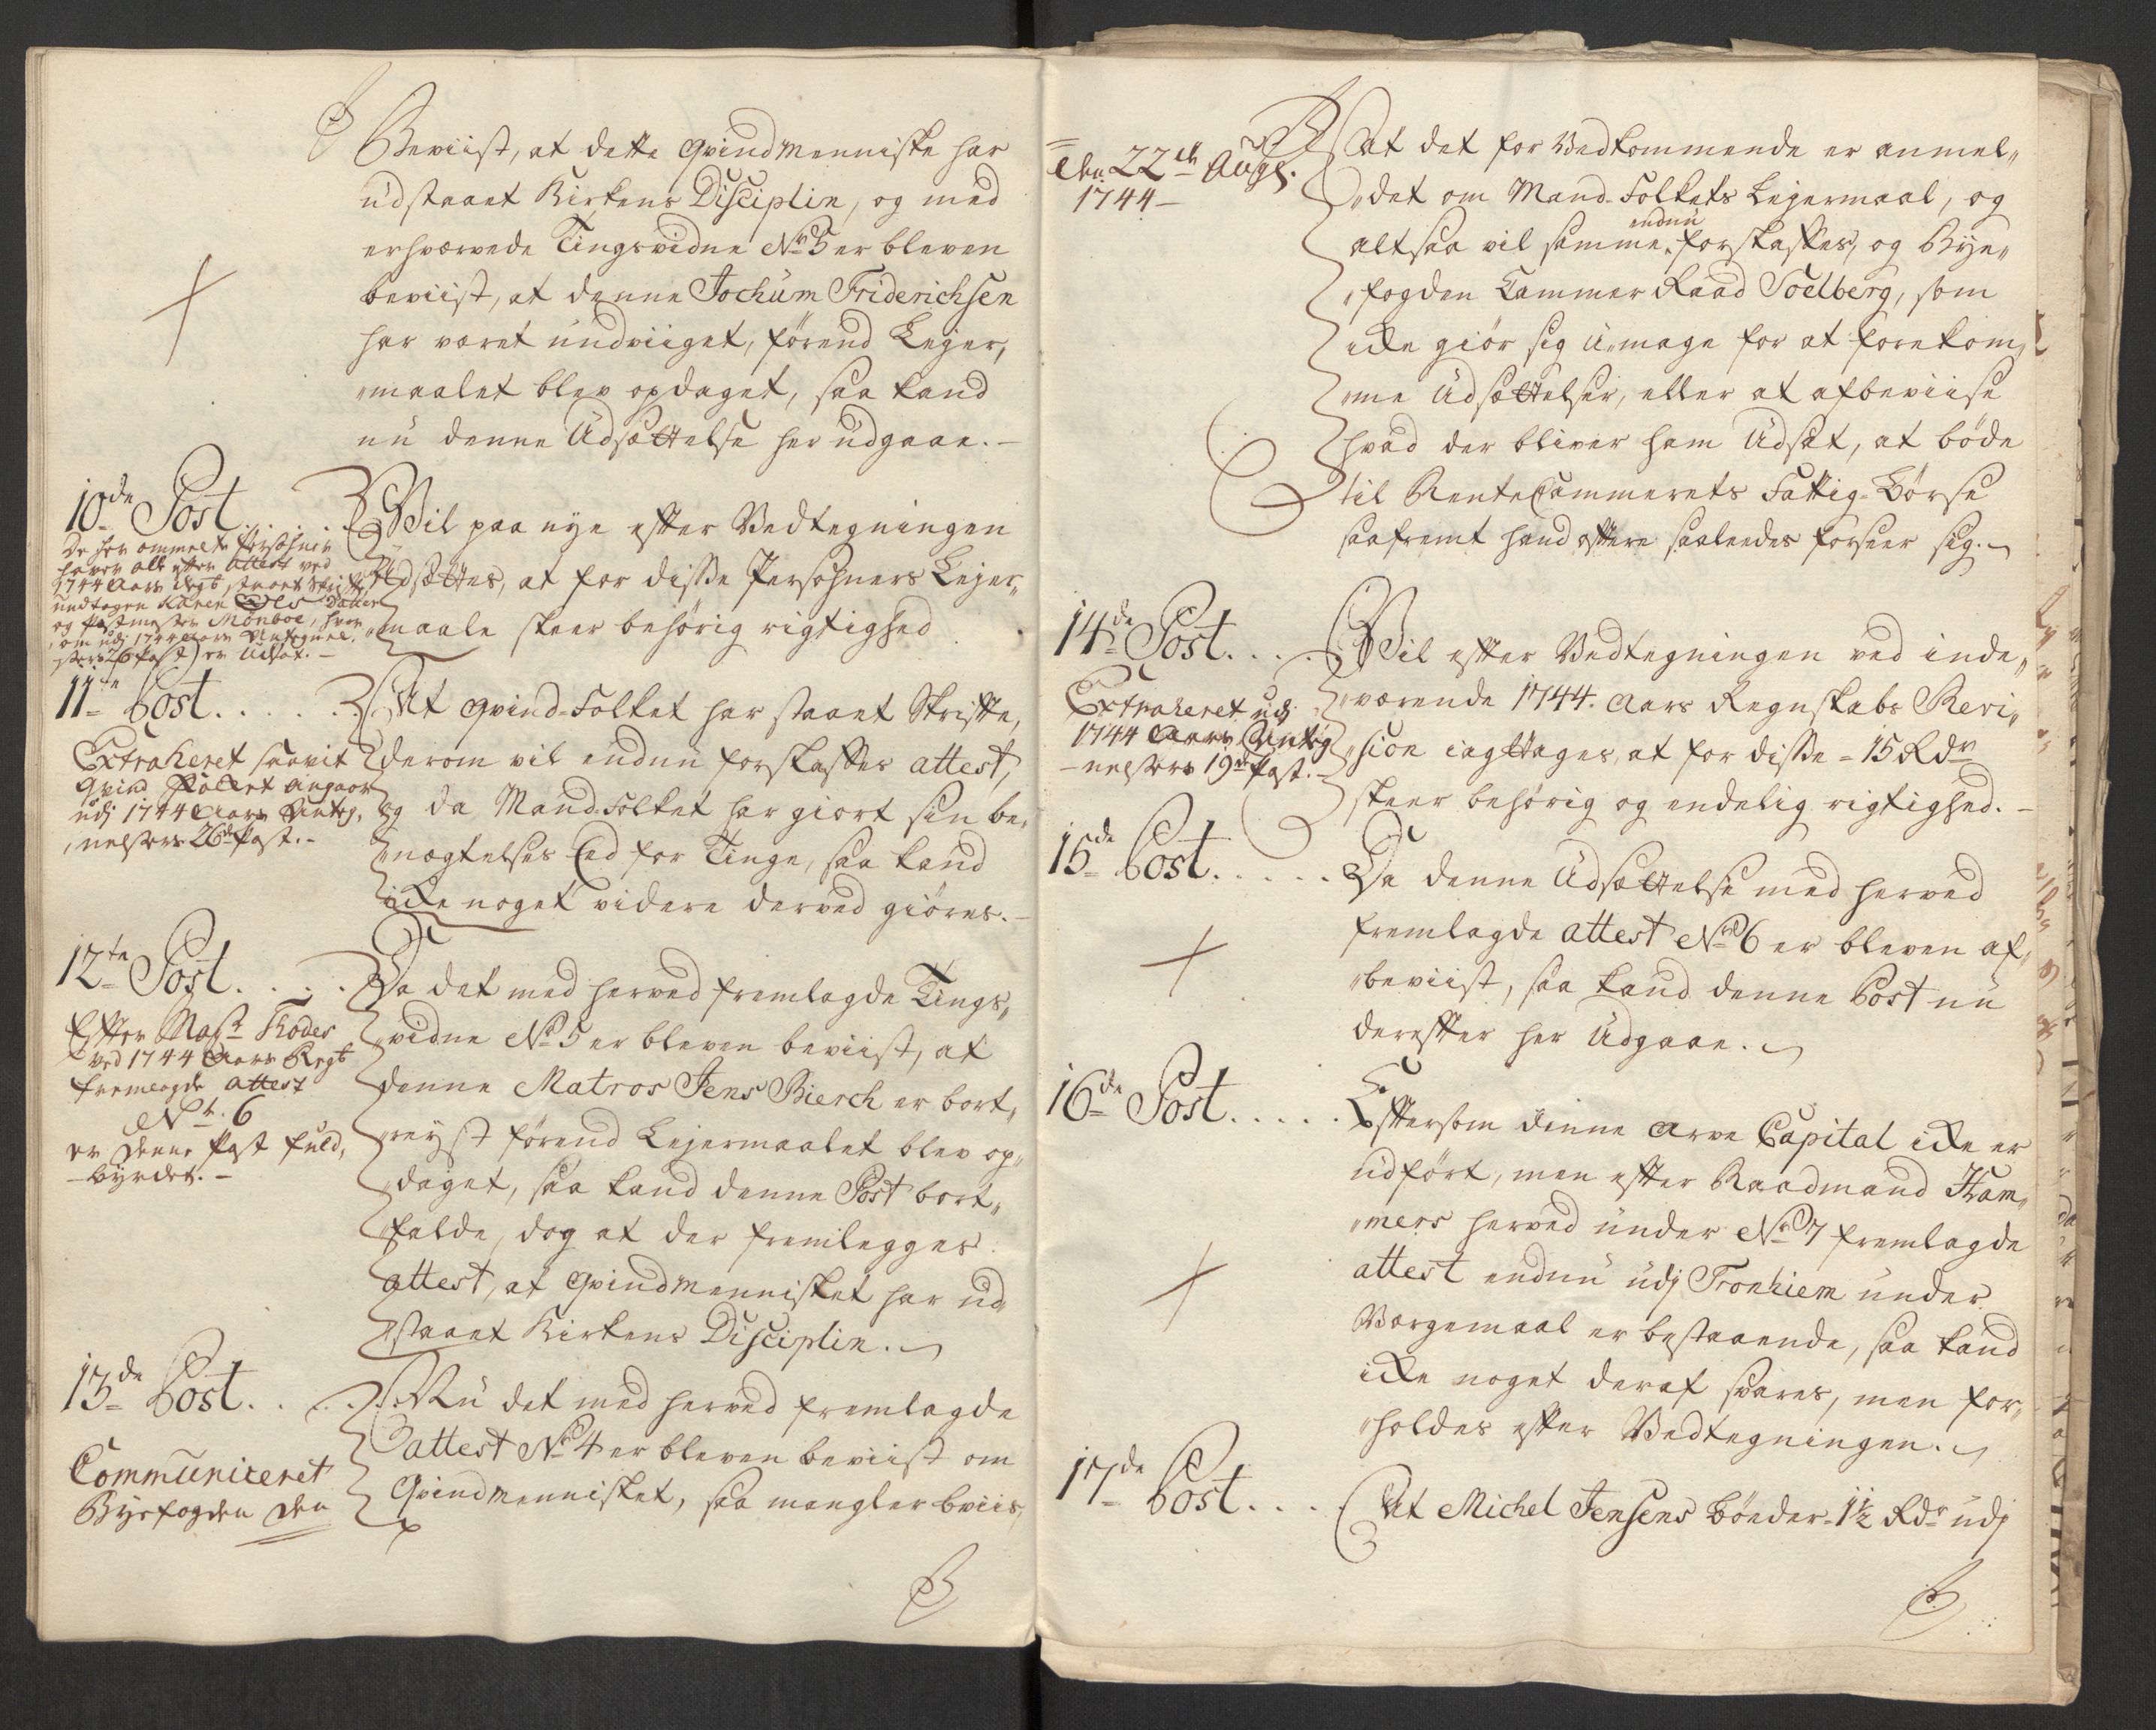 Beviist, at dette Qvindmenniske har
udstaaet Kirkens Disciplin, og med
erhvervede Tingsvidne No 5 er bleven
beviist, at denne Jochum Friderichsen
har været undviiget, førend Lejer,
„maalet blev opdaget, saa kand
nu denne Udsættelse her udgaae.—
10de Post....
De her ommelte Persohner
haver alle efter Attest ved
1744 Aars Regsk, staaet Skrifte
undtagen Karen Ols Datter
og Postmester Monboe, hvor
„om udj 1744 Aars Antegnel.
„sers 26 Post) er Udsat.—
Vil paa nye efter Vedtegningen
Udsættes, at for disse Persohners Lejer„
„maale skeer behørig rigtighed
11te Post.....
Extraheret saavit
Qvind Folket angaar
udj 1744 Aars Anteg,
„nelsers 26de Post.—
At Qvind-Folket har staaet Skrifte,
derom vil endnu forskaffes attest,
og da Mand-Folket har giort sin be„
„nægtelses Eed for Tinge, saa kand
icke noget videre derved giøres.—
12te Post....
Efter Mag. Thodes
ved 1744 Aars Regsk
fremlagde attest
No. 6
er denne Post fuld,
—byrdet.—
Da det med herved fremlagde Tings„
„vidne No 5 er bleven beviist, at
denne Matros Jens Bierch er bort„
„reyst førend Lejermaalet blev op„
„daget, saa kand denne Post bort„
„falde, dog at der fremlegges
attest, at Qvindmennisket har ud„
„staaet Kirkens Disciplin.
13de Post....
Communiceret
Byefogden den
Nu det med herved fremlagde
attest No 4 er bleven beviist om
Qvindmennisket, saa mangler beviis,
den 22de Augs.
1744—
At det for Vedkommende er anmel„
„det om Mand-Folkets Lejermaal, og
altsaa vil samme endnu forskaffes, og Bye„
„fogden Cammer Raad Soelberg, som
icke giør sig u„mage for at forekom„
„me Udsættelser, eller at afbeviise
hvad der bliver ham Udsat, at bøde
til RenteCammerets Fattig-Børse
saafremt hand oftere saaleedes forseer sig.
14de Post....
Extraheret udj
1744 Aars Anteg
—nelsers 19de Post.—
Vil efter Vedtegningen ved inde„
„værende 1744. Aars Regnskabs Revi„
„sion iagttages, at for disse - 15 Rdr
skeer behørig og endelig rigtighed.—
15de Post.....
Da denne Udsættelse med herved
fremlagde attest No 6 er bleven af„
„beviist, saa kand denne Post nu
derefter her Udgaae.
16de Post.....
Eftersom dinne Arve Capital icke er
udført, men efter Raadmand Ham„
„mers herved under No 7 fremlagde
attest endnu udj Tronhiem under
Værgemaal er bestaaende, saa kand
icke noget deraf svares, men for„
„holdes efter Vedtegningen.
17de Post....
At Michel Jensens Bønder - 1½ Rdr udj